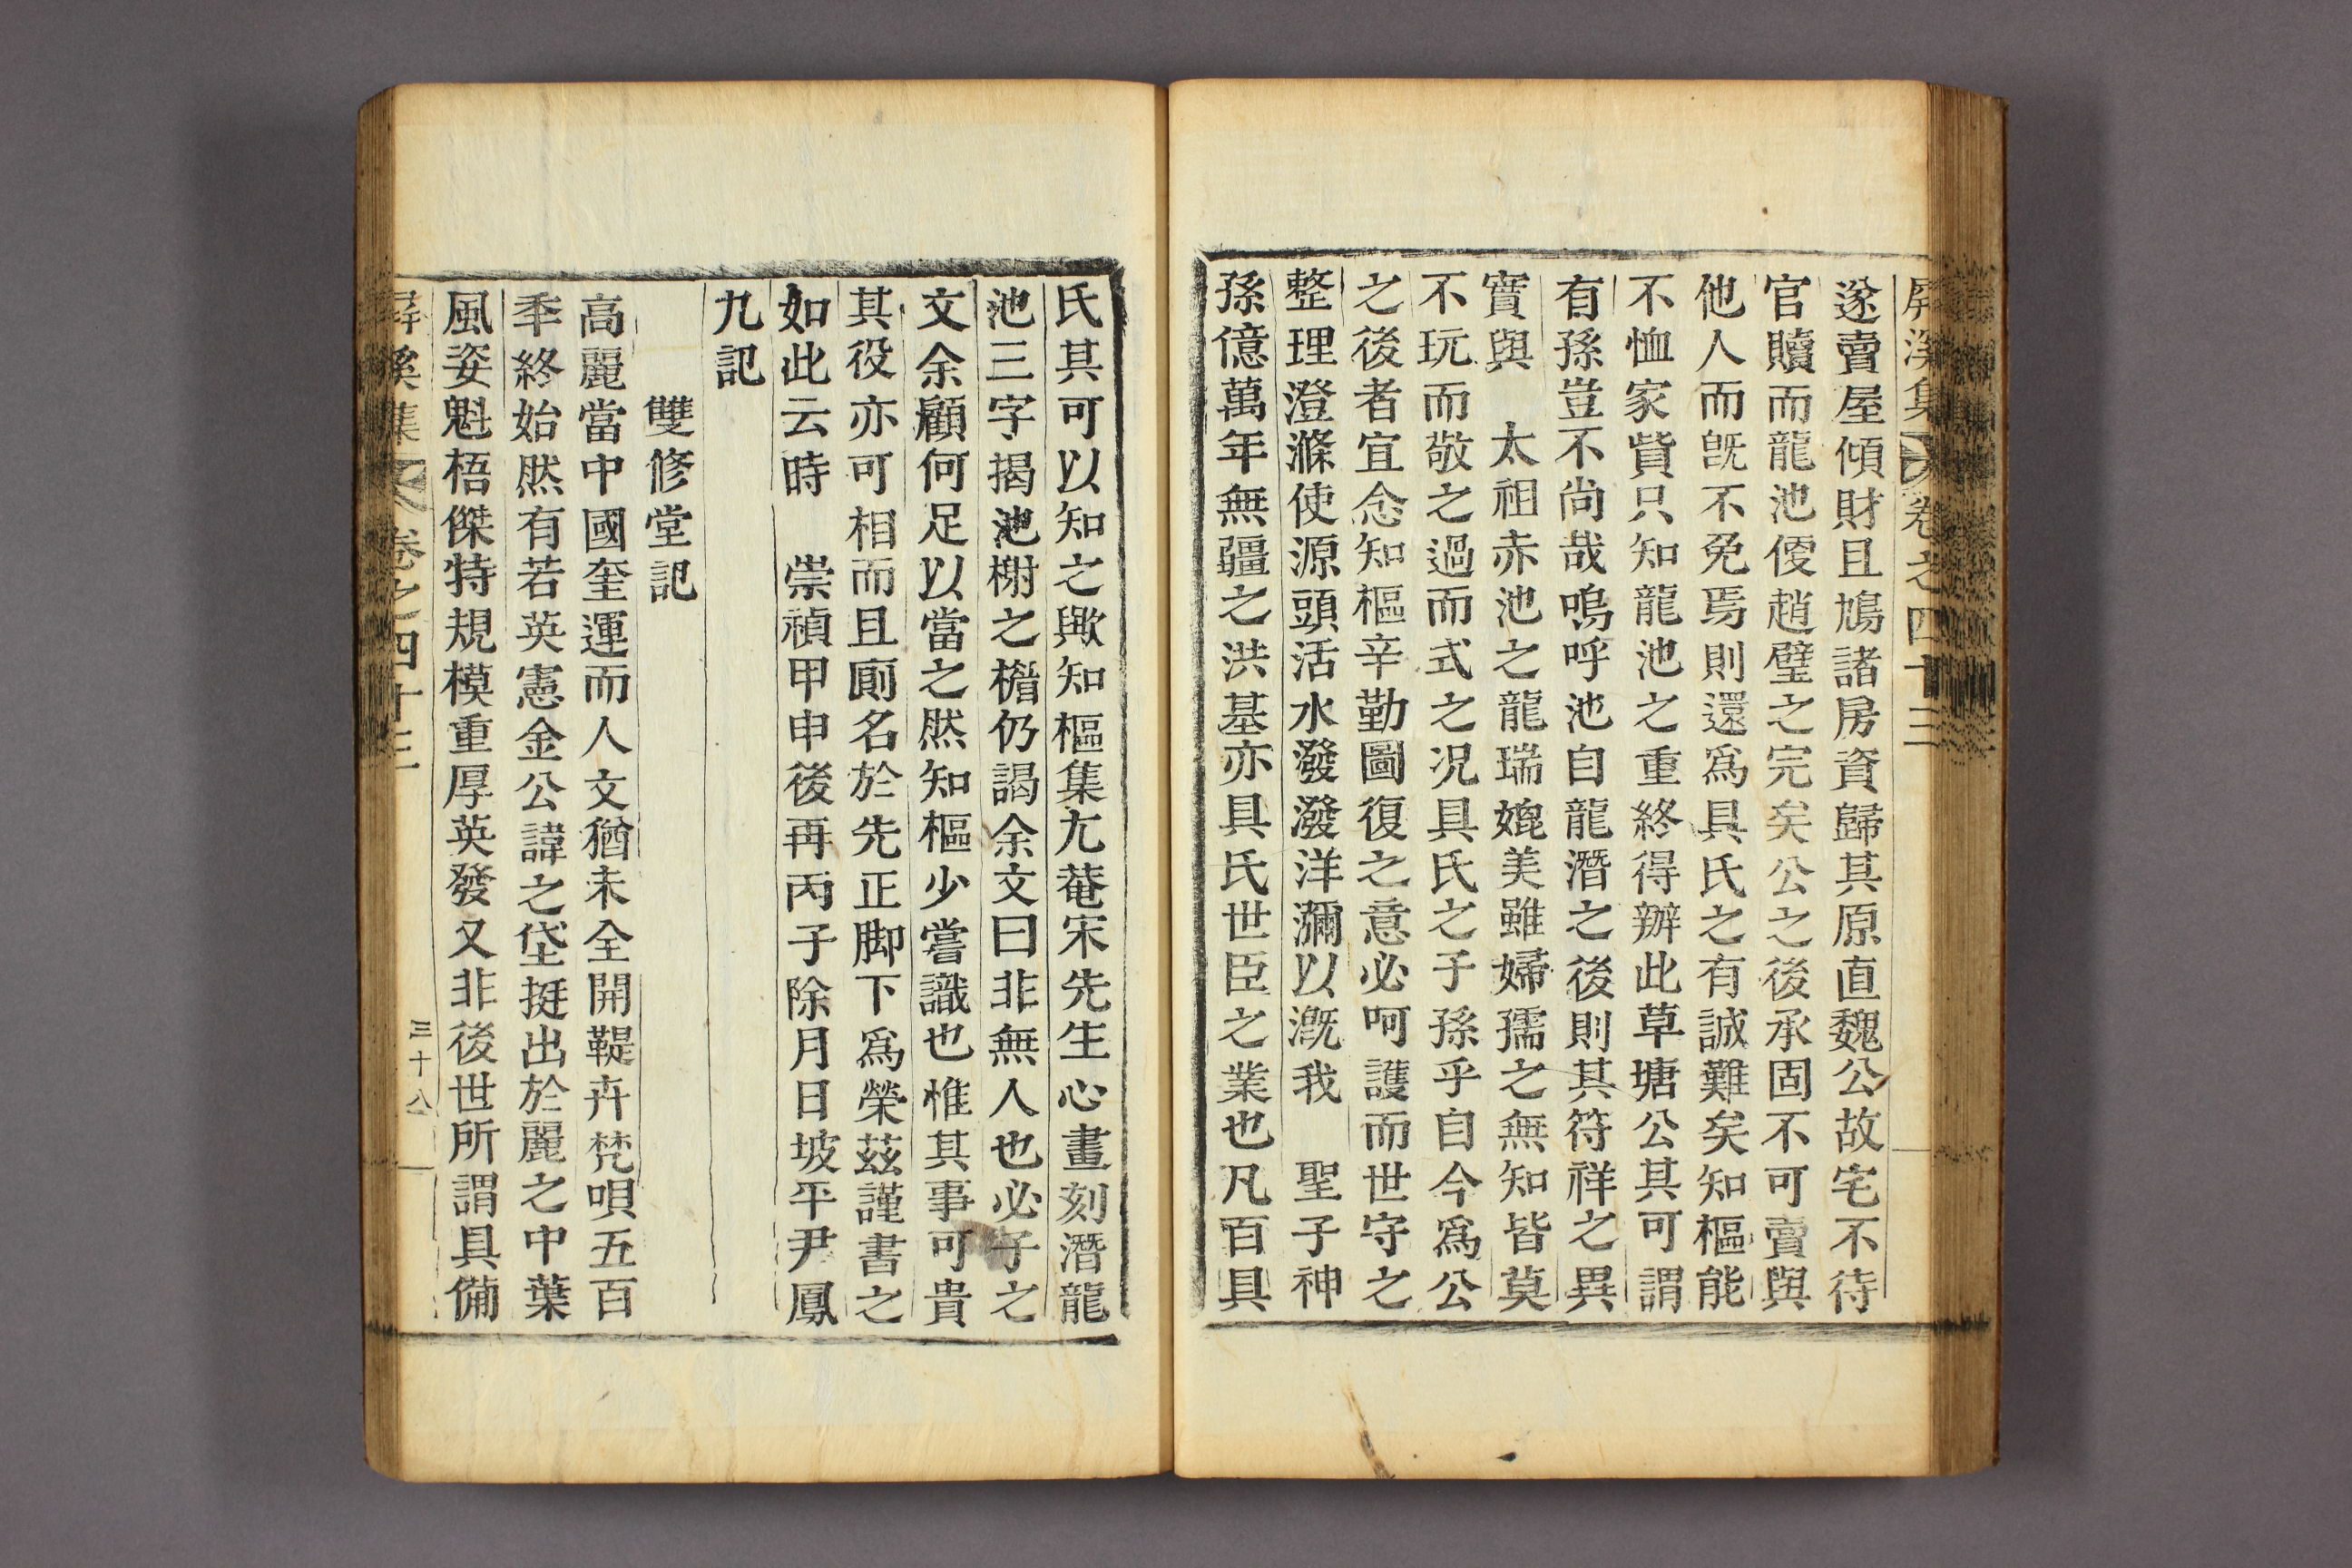 屏溪集 卷之四十三
遂賣屋傾財且鳩諸房資歸其原直魏公故宅不待
官贖而龍池便趙璧之完矣公之後承固不可賣與
他人而旣不免焉則還爲具氏之有誠難矣知樞能
不恤家貲只知龍池之重終得辦此草塘公其可謂
有孫豈不尙哉嗚呼池自龍潛之後則其符祥之異
實與 太祖赤池之龍瑞媲美雖婦孺之無知皆莫
不玩而敬之過而式之况具氏之子孫乎自今爲公
之後者宜念知樞辛勤圖復之意必呵護而世守之
整理澄滌使源頭活水潑潑洋瀰以漑我 聖子神
孫億萬年無疆之洪基亦具氏世臣之業也凡百具
氏其可以知之歟知樞集尤菴宋先生心畫刻潛龍
池三字揭池榭之檐仍謁余文曰非無人也必子之
文余顧何足以當之然知樞少嘗識也惟其事可貴
其役亦可相而且廁名於先正脚下爲榮玆謹書之
如此云時 崇禎甲申後再丙子除月日坡平尹鳳
九記
雙修堂記
高麗當中國奎運而人文猶未全開鞮卉梵唄五百
年終始然有若英憲金公諱之岱挺出於麗之中葉
風姿魁梧傑特規模重厚英發又非後世所謂具備
屏溪集 卷之四十三 三十八